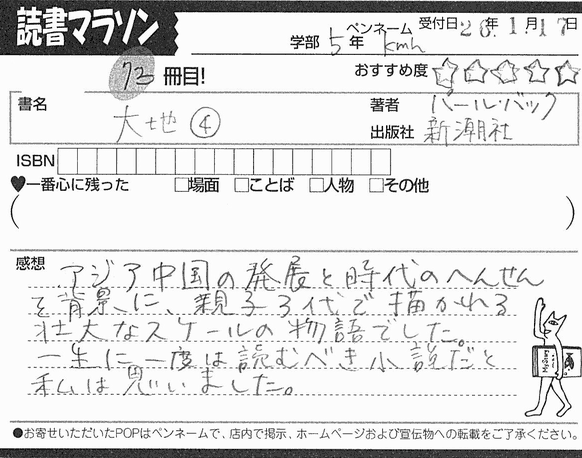 読書マラソン
学部 5年 ペンネーム kmh 受付日 26年1月17日
73冊目! おすすめ度 ☆☆☆☆☆
書名 大地④ 著者 パール・バック
出版社 新潮社
ISBN
♥一番心に残った □場面 □ことば □人物 □その他
( )
感想 アジア中国の発展と時代のへんせん
を背景に、親子3代で描かれる
壮大なスケールの物語でした。
一生に一度は読むべき小説だと
私は思いました。
●お寄せいただいたPOPはペンネームで、店内で掲示、ホームページおよび宣伝物への転載をご了承ください。